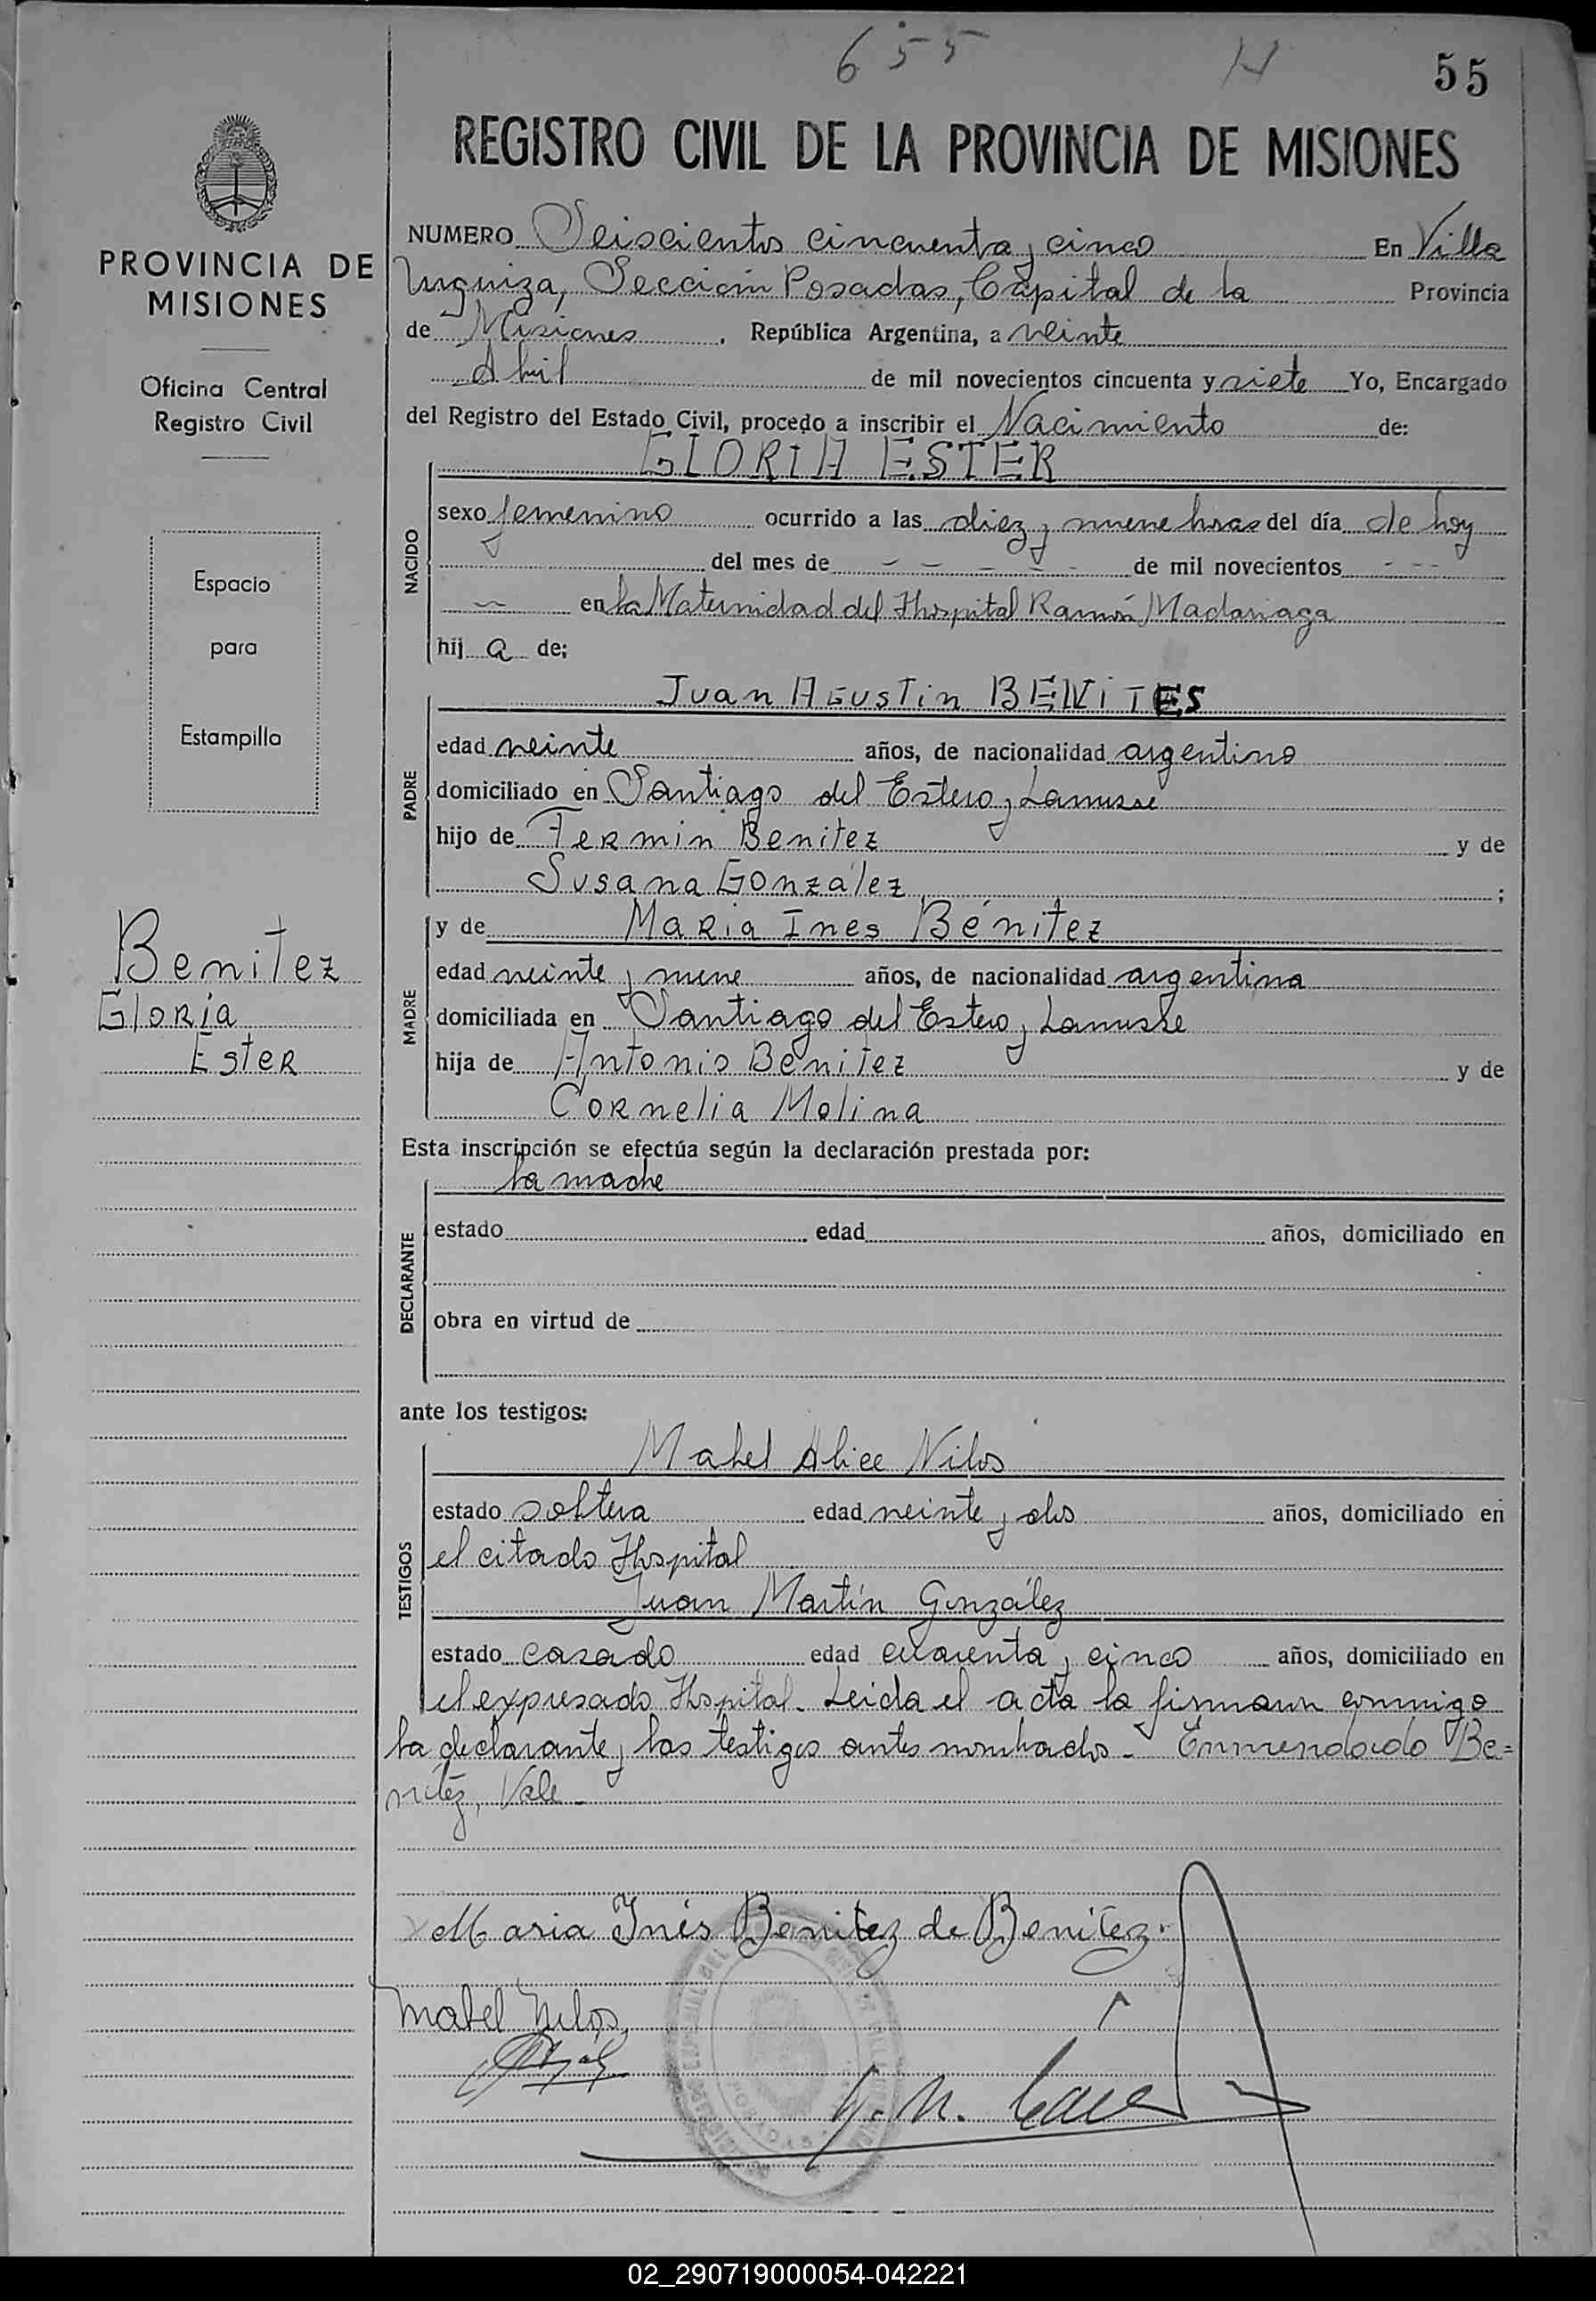 655
55
REGISTRO CIVIL DE LA PROVINCIA DE MISIONES
PROVINCIA DE
MISIONES
Oficina Central
Registro Civil
Espacio
para
Estampilla
Benitez
Gloria
Ester
NUMERO Seiscientos cincuenta y cinco En Villa
Urquiza, Sección Posadas, Capital de la Provincia
de Misiones, República Argentina, a veinte
Abril de mil novecientos cincuenta y siete Yo, Encargado
del Registro del Estado Civil, procedo a inscribir el Nacimiento de:
GLORIA ESTER
NACIDO
sexo femenino ocurrido a las diez y nueve horas del día de hoy
del mes de - - - - - de mil novecientos - - -
- en la Maternidad del Hospital Ramón Madariaga
hij a de:
Juan Agustin BENITES
PADRE
edad veinte años, de nacionalidad argentino
domiciliado en Santiago del Estero y Lanusse
hijo de Fermin Benitez y de
Susana González ;
MADRE
y de Maria Ines Bénitez
edad veinte y nueve años, de nacionalidad argentina
domiciliada en Santiago del Estero y Lanusse
hija de Antonio Benitez y de
Cornelia Molina
Esta inscripción se efectúa según la declaración prestada por:
la madre
DECLARANTE
estado edad años, domiciliado en
obra en virtud de
ante los testigos:
Mabel Alice Nilos
TESTIGOS
estado soltera edad veinte y dos años, domiciliado en
el citado Hospital
Juan Martín González
estado casado edad cuarenta y cinco años, domiciliado en
el expresado Hospital. Leida el acta la firmaron conmigo
la declarante y los testigos antes nombrados. Enmendado Be=
nitez, Vale.
Maria Inés Benitez de Benitez.
Mabel Nilos
02_290719000054-042221